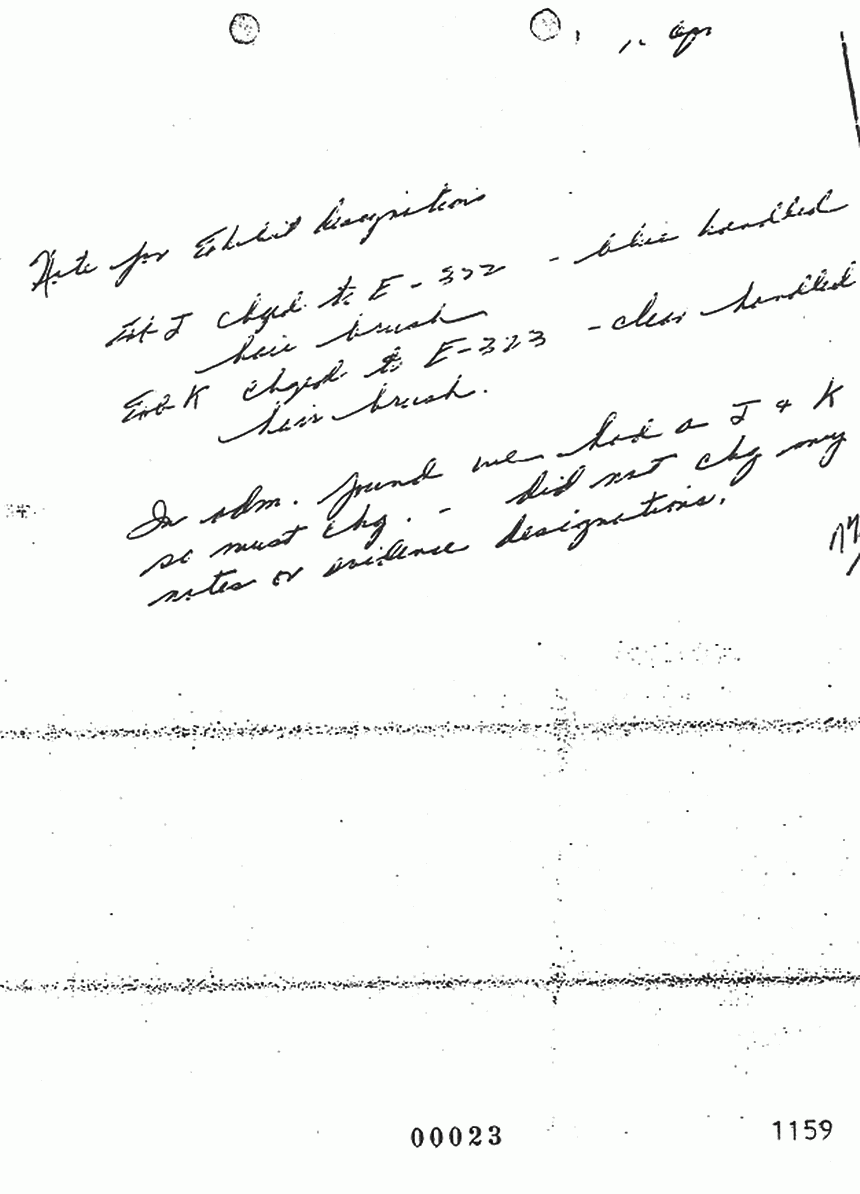 Note for Exhibit Designations
Exb J chged to E-322 - blue handled
hair brush
Exb K chged to E-323 - clear handled
hair brush.
In adm. found we had a J & K
so must chg. - did not chg my
notes or evidence designations.
00023
1159